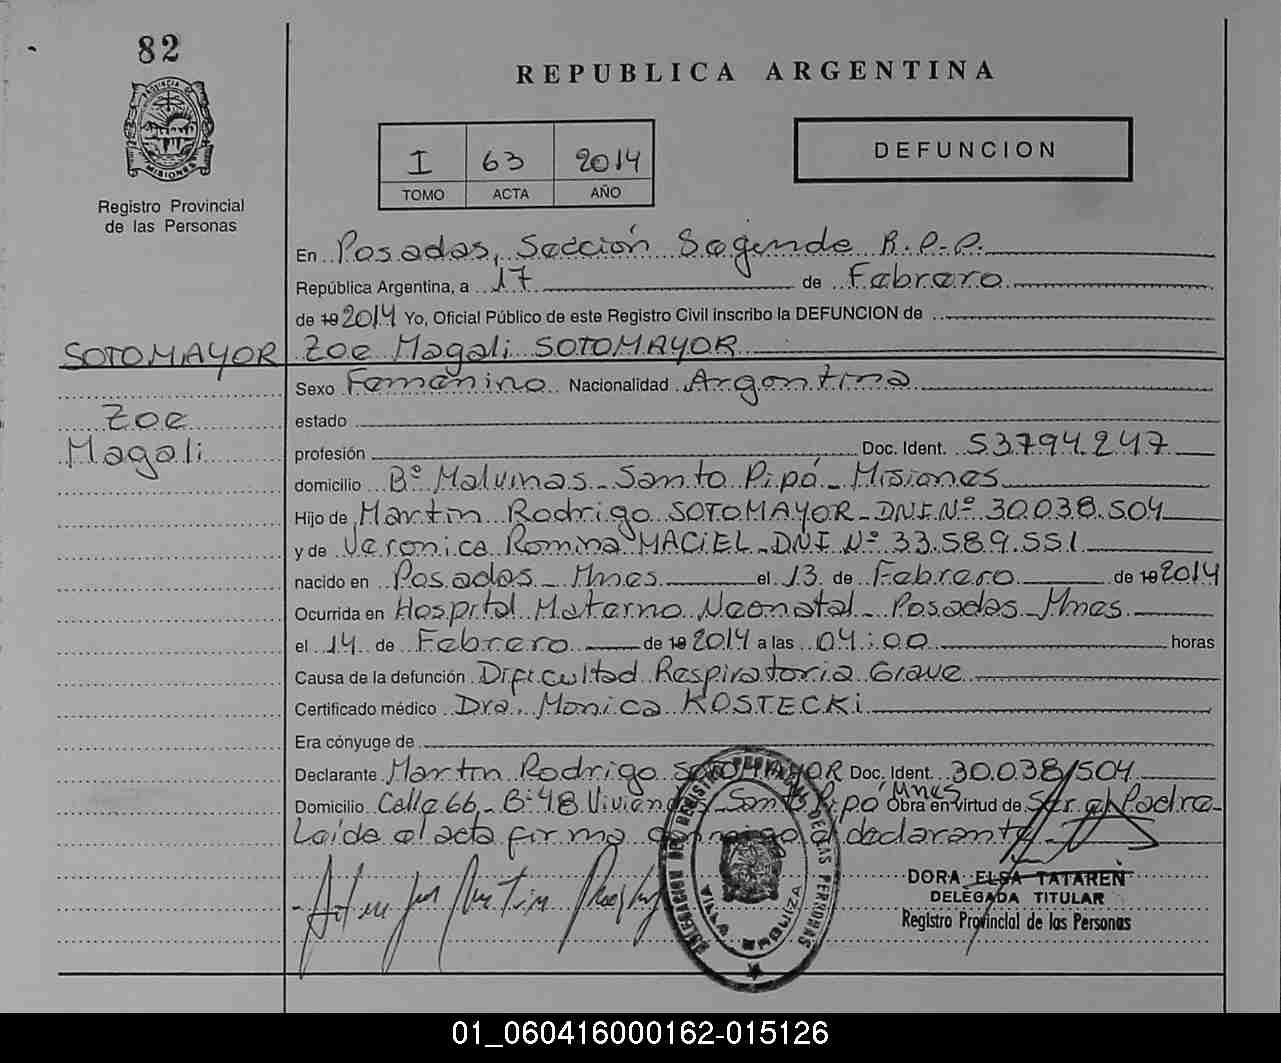 82
REPUBLICA ARGENTINA
PROVINCIA DE MISIONES
I 63 2014
TOMO ACTA AÑO
DEFUNCION
Registro Provincial
de las Personas
En Posadas, Sección Segunda R.P.P.
República Argentina, a 17 de Febrero
de 19 2014 Yo, Oficial Público de este Registro Civil inscribo la DEFUNCION de
SOTOMAYOR Zoe Magali SOTOMAYOR
Sexo Femenino Nacionalidad Argentina
Zoe
estado
Magali
profesión Doc. Ident. 53794.247
domicilio Bº Malvinas - Santo Pipó - Misiones
Hijo de Martin Rodrigo SOTOMAYOR - DNI Nº 30.038.504
y de Veronica Romina MACIEL - DNI Nº 33.589.551
nacido en Posadas - Mnes el 13 de Febrero de 19 2014
Ocurrida en Hospital Materno Neonatal - Posadas - Mnes
el 14 de Febrero de 19 2014 a las 04:00 horas
Causa de la defunción Dificultad Respiratoria Grave
Certificado médico Dra. Monica KOSTECKI
Era cónyuge de
Declarante Martin Rodrigo SOTOMAYOR Doc. Ident. 30.038.504
Domicilio Calle 66 - Bº 48 Viviendas - Santo Pipó Mnes Obra en virtud de Ser el Padre -
Leída el acta firma conmigo el declarante
DORA ELSA TATAREN
DELEGADA TITULAR
Registro Provincial de las Personas
01_060416000162-015126